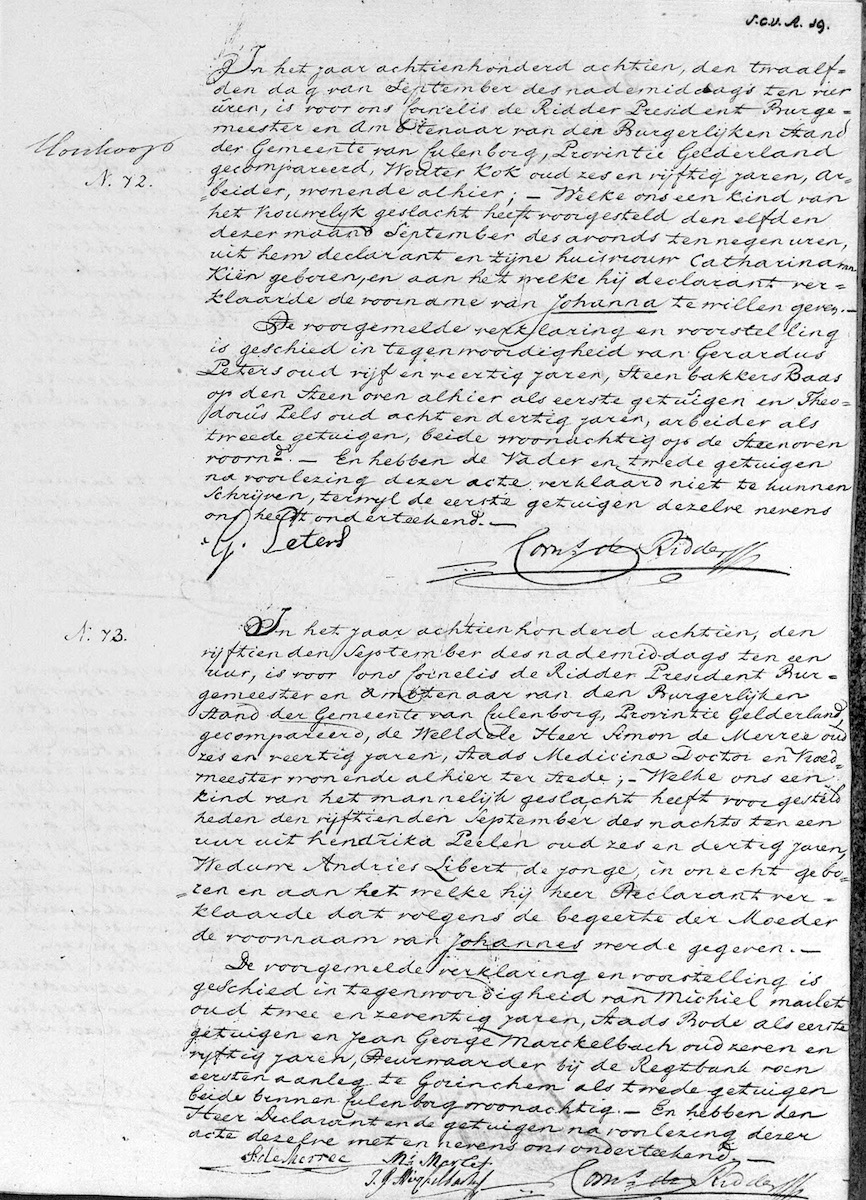 S.C.V. A. 19.
In het jaar achtienhonderd achtien, den twaalf=
den dag van September des nademiddags ten vier
uren, is voor ons Cornelis de Ridder President Burge=
meester en Ambtenaar van den Burgerlijken Stand
der Gemeente van Culenborg, Provintie Gelderland
N. 72.
gecompareerd, Wouter Kok oud zes en vijftig jaren, ar=
=beider, wonende alhier; – Welke ons een kind van
het Vrouwelyk geslacht heeft voorgesteld den elfden
dezer maand September des avonds ten negen uren,
uit hem declarant en zijne huisvrouw Catharina van
Kiën geboren, en aan het welke hij declarant ver=
klaarde de voorname van Johanna te willen geven. –
De voorgemelde verklaring en voorstelling
is geschied in tegenwoordigheid van Gerardus
Peters oud vijf en veertig jaren, Steenbakkers Baas
op den Steenoven alhier als eerste getuigen en Theo=
doûs Pels oud acht en dertig jaren, arbeider als
tweede getuigen, beide woonachtig op de Steenoven
voornd. – En hebben de Vader en twede getuigen
na voorlezing dezer acte verklaard niet te kunnen
Schrijven, terwyl de eerste getuigen dezelve nevens
ons heeft onderteekend. –
G. Peters
Corns. de Ridder
N. 73.
In het jaar achtienhonderd achtien, den
vijftienden September des nademiddags ten een
uur, is voor ons Cornelis de Ridder President Bur=
gemeester en Ambtenaar van den Burgerlijken
Stand der Gemeente van Culenborg, Provintie Gelderland,
gecompareerd, de Weledele Heer Simon de Merree oud
zes en veertig jaren, Stads Medicinæ Doctor en Vroed=
meester wonende alhier ter Stede; – Welke ons een
kind van het mannelijk geslacht heeft voorgesteld
heden den vijftienden September des nachts ten een
uur uit hendrika Peelen oud zes en dertig jaren,
Weduwe Andries Libert de jonge, in onecht gebo=
=ren en aan het welke hij heer Declarant ver=
klaarde dat volgens de begeerte der Moeder
de voornaam van Johannes werde gegeven. –
De voorgemelde verklaring en voorstelling is
geschied in tegenwoordigheid van Michiel Marlet
oud twee en zeventig jaren, Stads Bode als eerste
getuigen en Jean George Marckelbach oud zeven en
vyftig jaren, Deurwaarder bij de Regtbank van
eersten aanleg te Gorinchem als twede getuigen
beide binnen Culenborg woonachtig. – En hebben den
Heer Declarant en de getuigen na voorlezing dezer
acte dezelve met en nevens ons onderteekend. –
S. de Merree Ml. Marlet
Corns. de Ridder